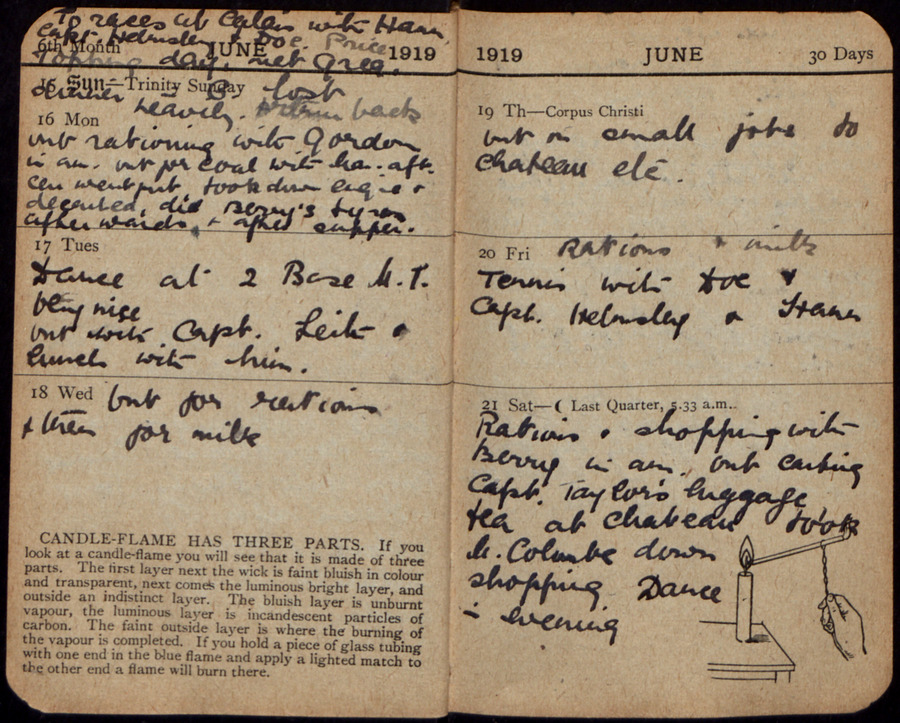 To races at Calais with Hann,
Capt. Helmsley & Doc. Price
6th Month JUNE 1919
Topping day, met Greg.
15 Sun—Trinity Sunday lost
dinner
heavily. back
16 Mon
out rationing with Gordon
in am. out for coal with aft.
went took down engine &
decarbed, did Berry's tyres
afterwards, & after supper.
17 Tues
Dance at 2 Base M.T.
very nice
out with Capt. Leith &
lunch with him.
18 Wed out for rations
& then for milk
CANDLE-FLAME HAS THREE PARTS. If you
look at a candle-flame you will see that it is made of three
parts. The first layer next the wick is faint bluish in colour
and transparent, next comes the luminous bright layer, and
outside an indistinct layer. The bluish layer is unburnt
vapour, the luminous layer is incandescent particles of
carbon. The faint outside layer is where the burning of
the vapour is completed. If you hold a piece of glass tubing
with one end in the blue flame and apply a lighted match to
the other end a flame will burn there.
1919 JUNE 30 Days
19 Th—Corpus Christi
out on small jobs to
chateau etc.
20 Fri Rations & milk
Tennis with Doc &
Capt. Helmsley &
21 Sat—☾ Last Quarter, 5.33 a.m.
Rations & shopping with
Berry in am. out carting
Capt. Taylor's luggage
tea at chateau took
M. Colombe down
shopping Dance
in evening